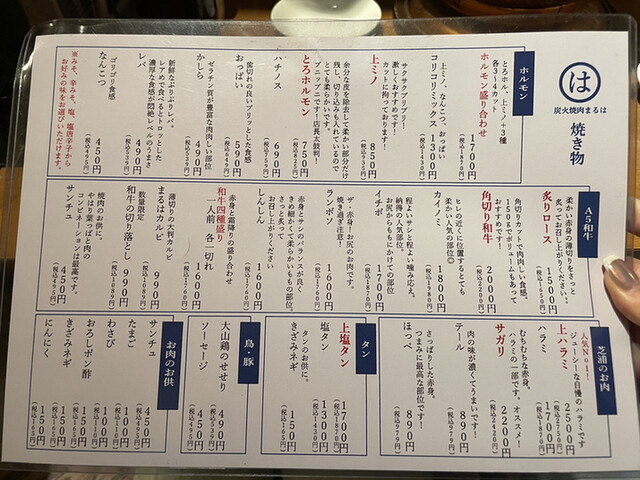 は
炭火焼肉まるは
焼き物
ホルモン
とろホル、上ミノ+3種
各3〜4カット
ホルモン盛り合わせ
1700円
(税込1870円)
上ミノ、なんこつ、おっぱい
コリコリミックス
1300円
サクサクプリプリ!
激しくおすすめです!
カットに拘っております!
上ミノ
850円
余分な皮を除去して柔らかい部分だけ
残し、切り込みも入れているので
とても柔らかいです。
プニップニです!店長太鼓判!
とろホルモン
750円
ハチノス
690円
歯切れの良いプリッとした食感
おっぱい
590円
ゼラチン質が豊富な肉肉しい部位
かしら
490円
(税込539円)
新鮮なぷりぷりレバ。
レアめで食べるとトロッとした
濃厚な食感が悶絶レベルのうまさ
レバ
490円
(税込539円)
ゴリゴリ食感
なんこつ
450円
(税込495円)
※みそ、辛みそ、塩、塩唐辛子から
お好みの味をお選びいただけます。
A5和牛
柔かい赤身の薄切りをさっと
炙ってお召し上がりください。
炙りロース
1500円
(税込1650円)
角切りカットで肉肉しい食感。
150gでボリュームもあって
おすすめです!
角切り和牛
2000円
(税込2200円)
ヒレの近くに位置するとても
柔かい人気の部位◎
カイノミ
1800円
程よいサシと程よい噛み応え。
納得の人気部位。
お尻からももにかけての部位
イチボ
1700円
ザ・赤身!お尻のお肉です。
焼き過ぎ注意!
ランボソ
1600円
(税込1760円)
赤身とサシのバランスが良く
きめ細かくて柔らかいももの部位。
さっと炙って
お召し上がりください
しんしん
1600円
(税込1760円)
赤身と霜降りの盛り合わせ
和牛四種盛り
一人前 各一切れ
1600円
(税込1760円)
薄切りの大判カルビ
まるはカルビ
990円
(税込1089円)
数量限定
和牛の切り落とし
990円
(税込1089円)
焼肉のお供に。
やはり葉っぱと肉の
コンビネーションは最高です。
サンチュ
450円
(税込495円)
芝浦のお肉
人気No1!
ジューシーな自慢のハラミです
上ハラミ
2500円
(税込2750円)
ハラミ
1700円
(税込1870円)
むちむちな赤身。
ハラミの一部です。オススメ!
サガリ
2200円
(税込2420円)
肉の味が濃くてうまいです!
テール
890円
(税込979円)
さっぱりした赤身。
つまみに最高な部位です!
ほっぺ
890円
(税込979円)
タン
上塩タン
1700円
(税込1870円)
塩タン
1300円
(税込1430円)
タンのお供に。
きざみネギ
150円
(税込165円)
鳥・豚
大山鶏のせせり
490円
(税込539円)
ソーセージ
450円
(税込495円)
お肉のお供
サンチュ
450円
(税込495円)
たまご
100円
(税込110円)
わさび
100円
(税込110円)
おろしポン酢
150円
(税込165円)
きざみネギ
150円
(税込165円)
にんにく
150円
(税込165円)